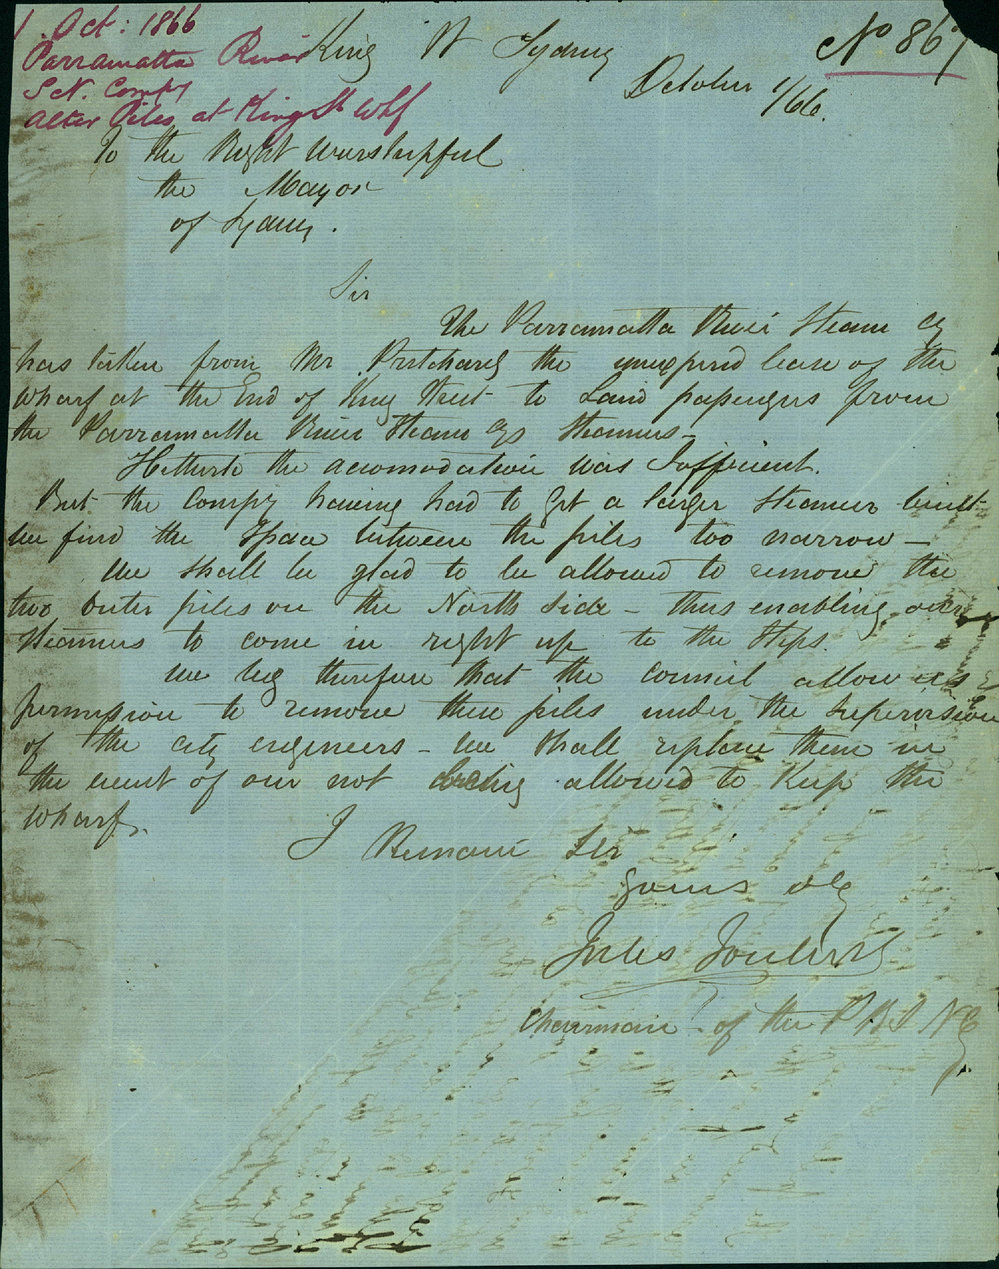 1. Oct: 1866
Parramatta River
S N. Compy
alter Piles at King St Whf
No 867
King St Sydney
October 1/66.
To the Right Worshipful
the Mayor
of Sydney.
Sir
The Parramatta River Steam Cy
has taken from Mr Pritchard the unexpired lease of the
wharf at the End of King Street to Land passengers from
the Parramatta River Steam Cys Steamers -
Hitherto the acomodation was Sufficient.
But the Compy having had to get a larger Steamer built
we find the Space between the piles too narrow -
We shall be glad to be allowed to remove the
two outer piles on the North Side - thus enabling our
Steamers to come in right up to the Steps.
We beg therefore that the Council allow us
permission to remove these piles under the Supervision
of the City engineers - We shall replace them in
the event of our not being allowed to Keep the
Wharf.
I Remain Sir
Yours
Jules Joubert
Chairman of the P R S N Cy